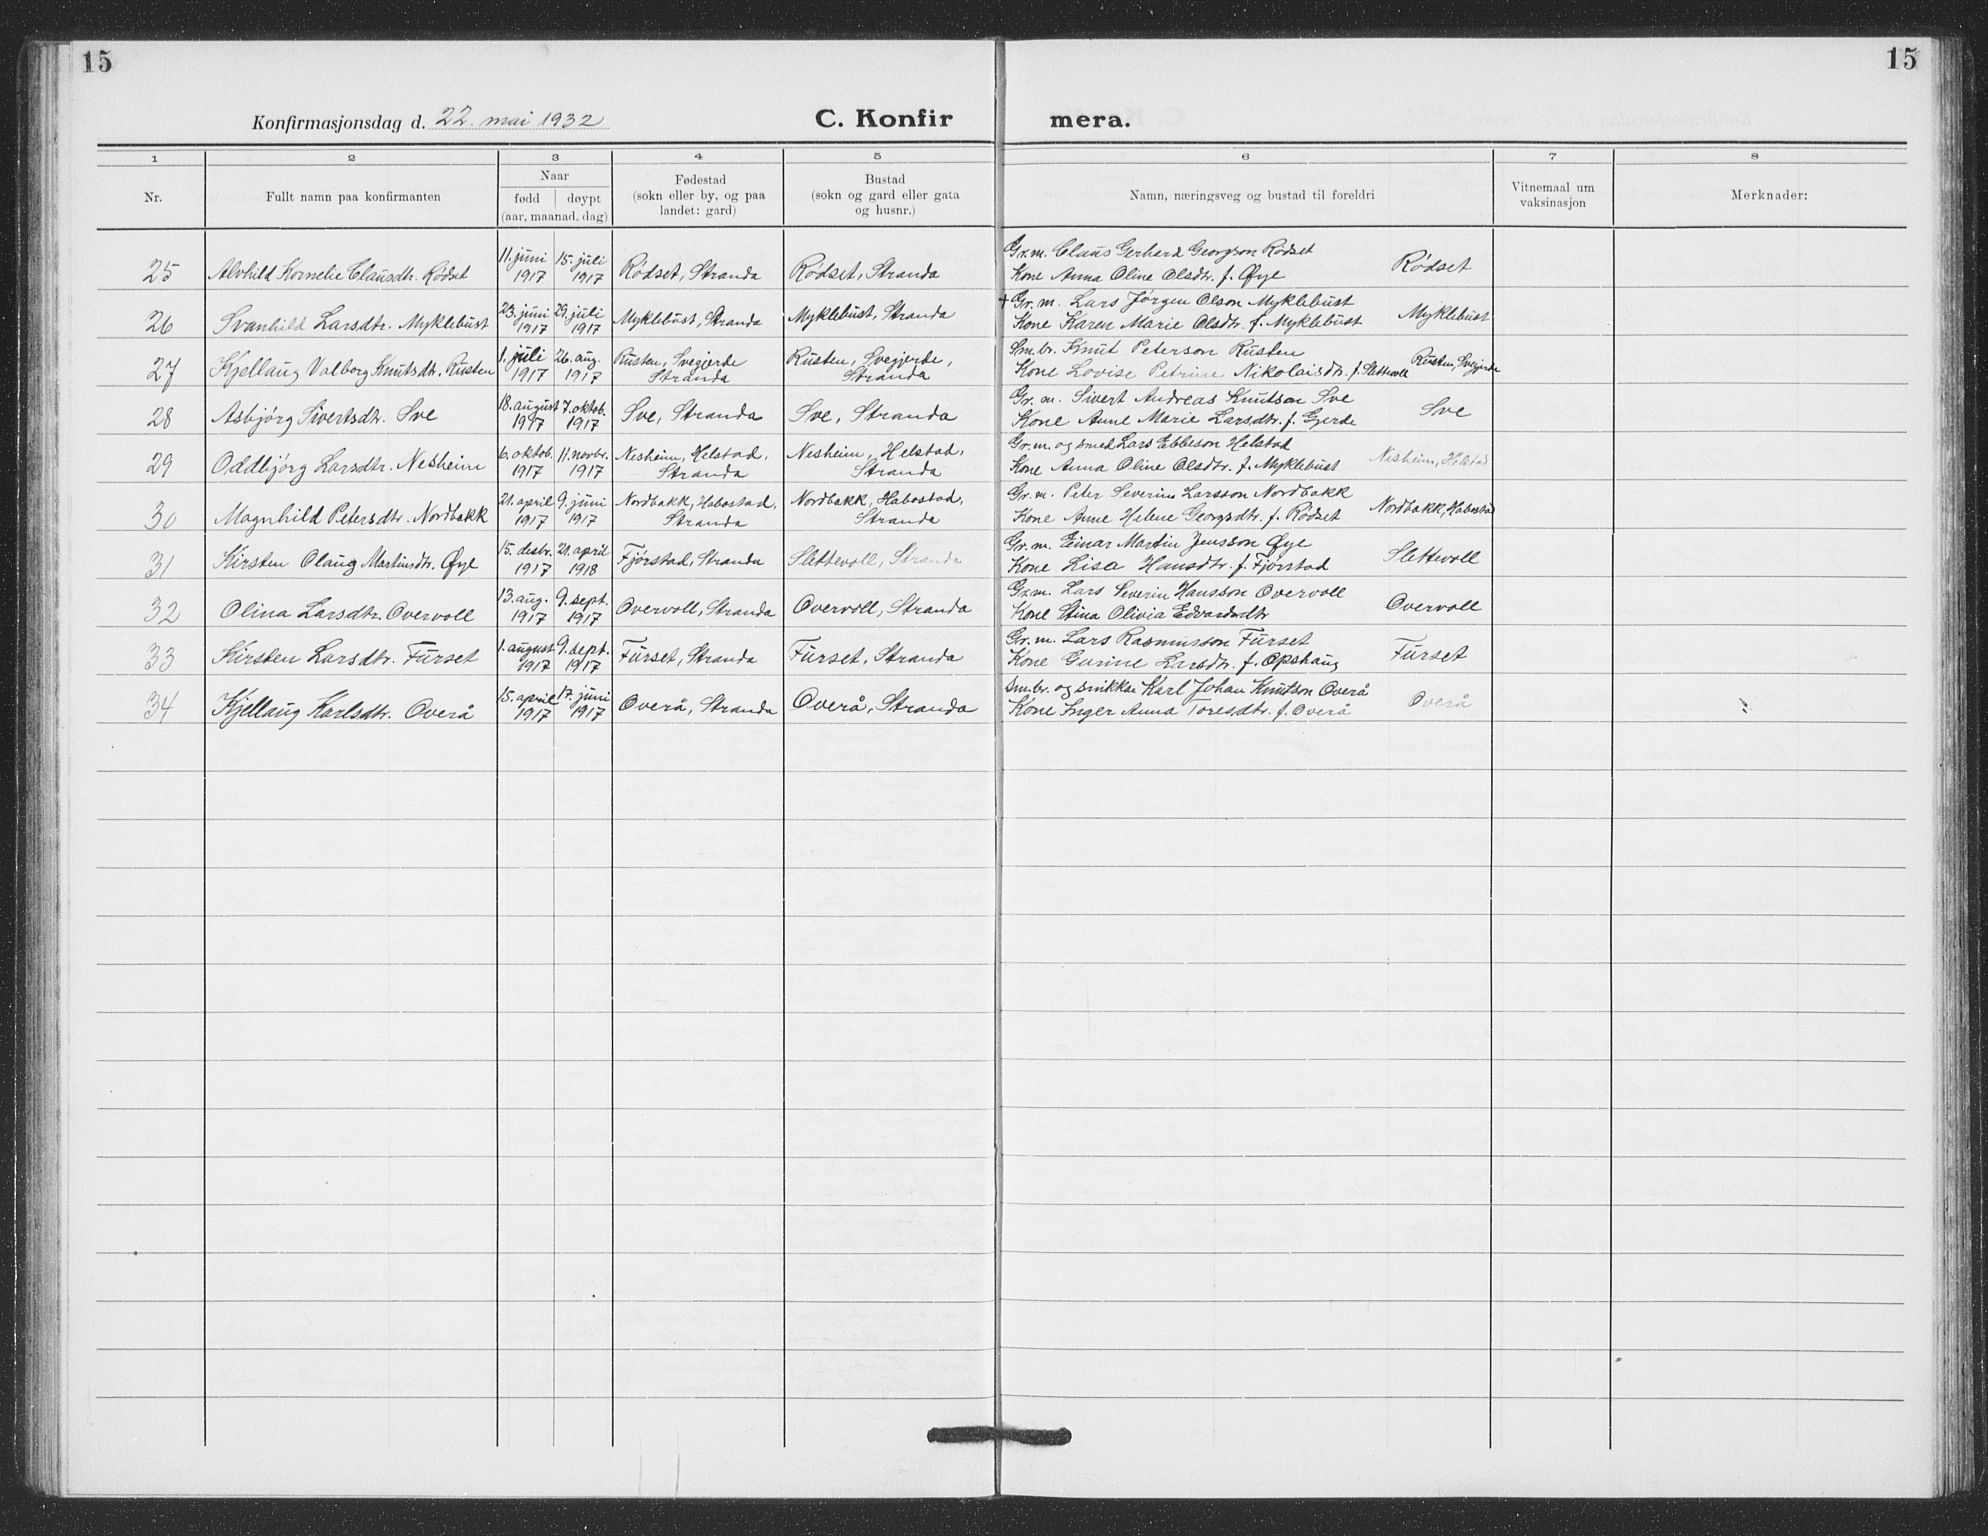 15
15
Konfirmasjonsdag d. 22. mai 1932
C. Konfir
mera.
1 2 3 4 5 6 7 8
Nr.
Fullt namn paa konfirmanten
Naar
fødd døypt
(aar, maanad, dag)
Fødestad
(sokn eller by, og paa
landet: gard)
Bustad
(sokn og gard eller gata
og husnr.)
Namn, næringsveg og bustad til foreldri
Vitnemaal um
vaksinasjon
Merknader:
25 Alvhild Kornelie Clausdtr. Rødset 11. juni 1917 15. juli 1917 Rødset, Stranda Rødset, Stranda Gr.m. Claus Gerhard Georgson Rødset
Kone Anna Oline Olsdtr. f. Øye Rødset
26 Svanhild Larsdtr. Myklebust 23. juni 1917 29. juli 1917 Myklebust, Stranda Myklebust, Stranda + Gr. m. Lars Jørgen Olson Myklebust
Kone Karen Marie Olsdtr. f. Myklebust Myklebust
27 Kjellaug Valborg Knutsdtr. Rusten 1. juli 1917 26. aug. 1917 Rusten, Svegjerde Stranda Rusten, Svegjerde, Stranda Sm.br. Knut Peterson Rusten
Kone Lovise Petrine Nikolaisdtr. f. Slettevoll Rusten, Svegjerde
28 Asbjørg Sivertsdtr. Sve 18. august 1917 7. oktob. 1917 Sve, Stranda Sve, Stranda Gr. m. Sivert Andreas Knutson Sve
Kone Anne Marie Larsdtr. f. Gjerde Sve
29 Oddbjørg Larsdtr. Nesheim 6. oktob. 1917 11. novbr. 1917 Nesheim, Helstad, Stranda Nesheim, Helstad, Stranda Gr.m. og smed Lars Ebbeson Helstad
Kone Anna Oline Olsdtr. f. Myklebust Nesheim, Helstad
30 Magnhild Petersdtr. Nordbakk 21. april 1917 9. juni 1917 Nordbakk, Habostad, Stranda Nordbakk, Habostad, Stranda Gr. m. Peter Severin Larsson Nordbakk
Kone Anne Helene Georgsdtr. f. Rødset Nordbakk, Habostad
31 Kirsten Olaug Martinsdtr. Øye 15. desbr. 1917 21. april 1918 Fjørstad, Stranda Slettevoll, Stranda Gr. m. Einar Martin Jensson Øye
Kone Lisa Hansdtr. f. Fjørstad Slettevoll
32 Olina Larsdtr. Overvoll 13. aug. 1917 9. sept. 1917 Overvoll, Stranda Overvoll, Stranda Gr.m. Lars Severin Hansson Overvoll
Kone Stina Olivia Edvardsdtr Overvoll
33 Kirsten Larsdtr. Furset 1. august 1917 9. sept. 1917 Furset, Stranda Furset, Stranda Gr. m. Lars Rasmusson Furset
Kone Gurine Larsdtr. f. Opshaug Furset
34 Kjellaug Karlsdtr. Overå 15. april 1917 17. juni 1917 Overå, Stranda Overå, Stranda Sm.br. og snikkar Karl Johan Knutson Overå
Kone Inger Anna Toresdtr. f. Overå Overå